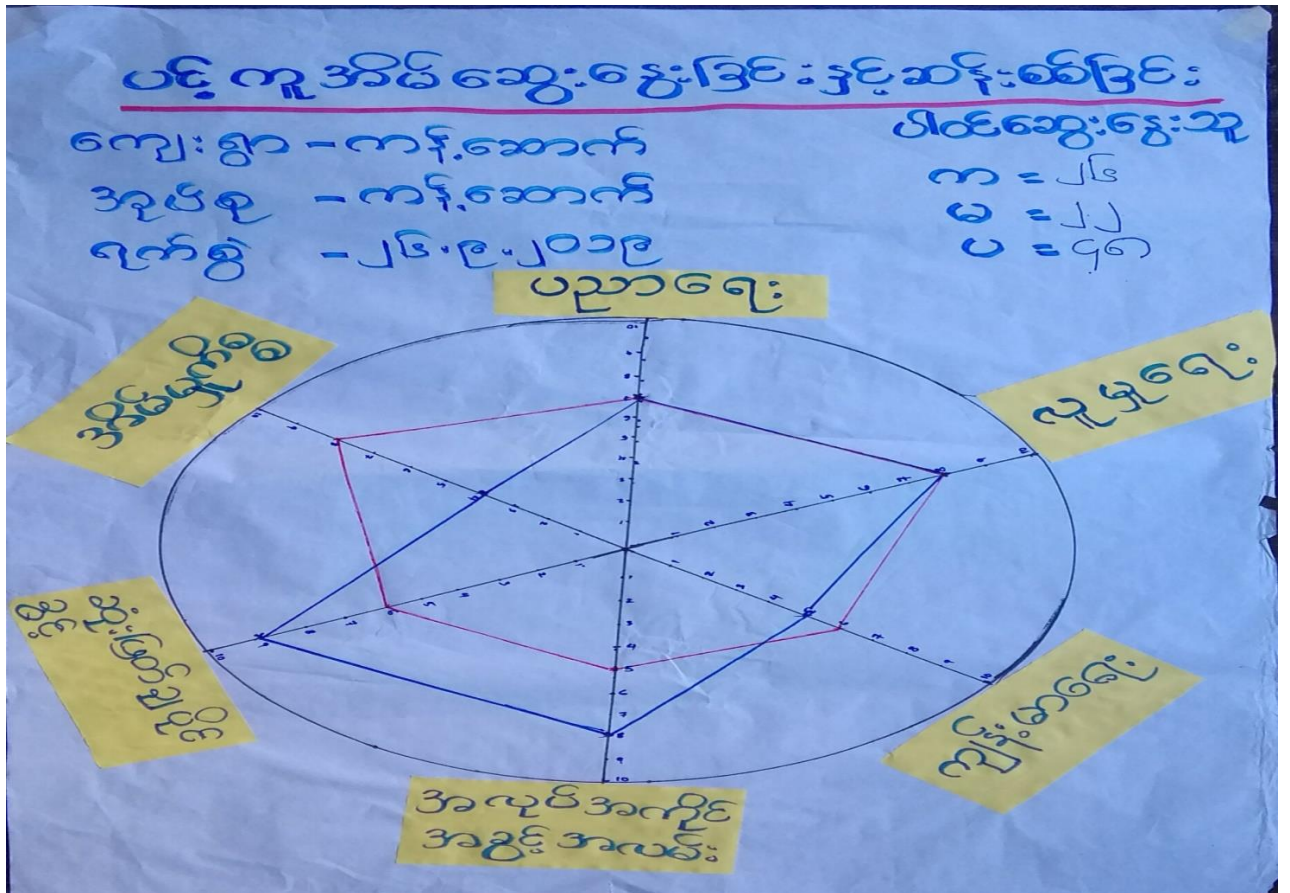 ပင့်ကူအိမ်ဆွေးနွေးခြင်းနှင့်ဆန်းစစ်ခြင်း
ကျေးရွာ - ကန့်ဆောက်
အုပ်စု - ကန့်ဆောက်
ရက်စွဲ - ၂၆.၉.၂၀၁၉
ပါဝင်ဆွေးနွေးသူ
က = ၂၆
မ = ၂၂
ပ = ၄၈
ပညာရေး
လူမှုရေး
ကျန်းမာရေး
အလုပ်အကိုင်
အခွင့်အလမ်း
ဆုံးဖြတ်ပိုင်ခွင့်
အိမ်မှုကိစ္စ